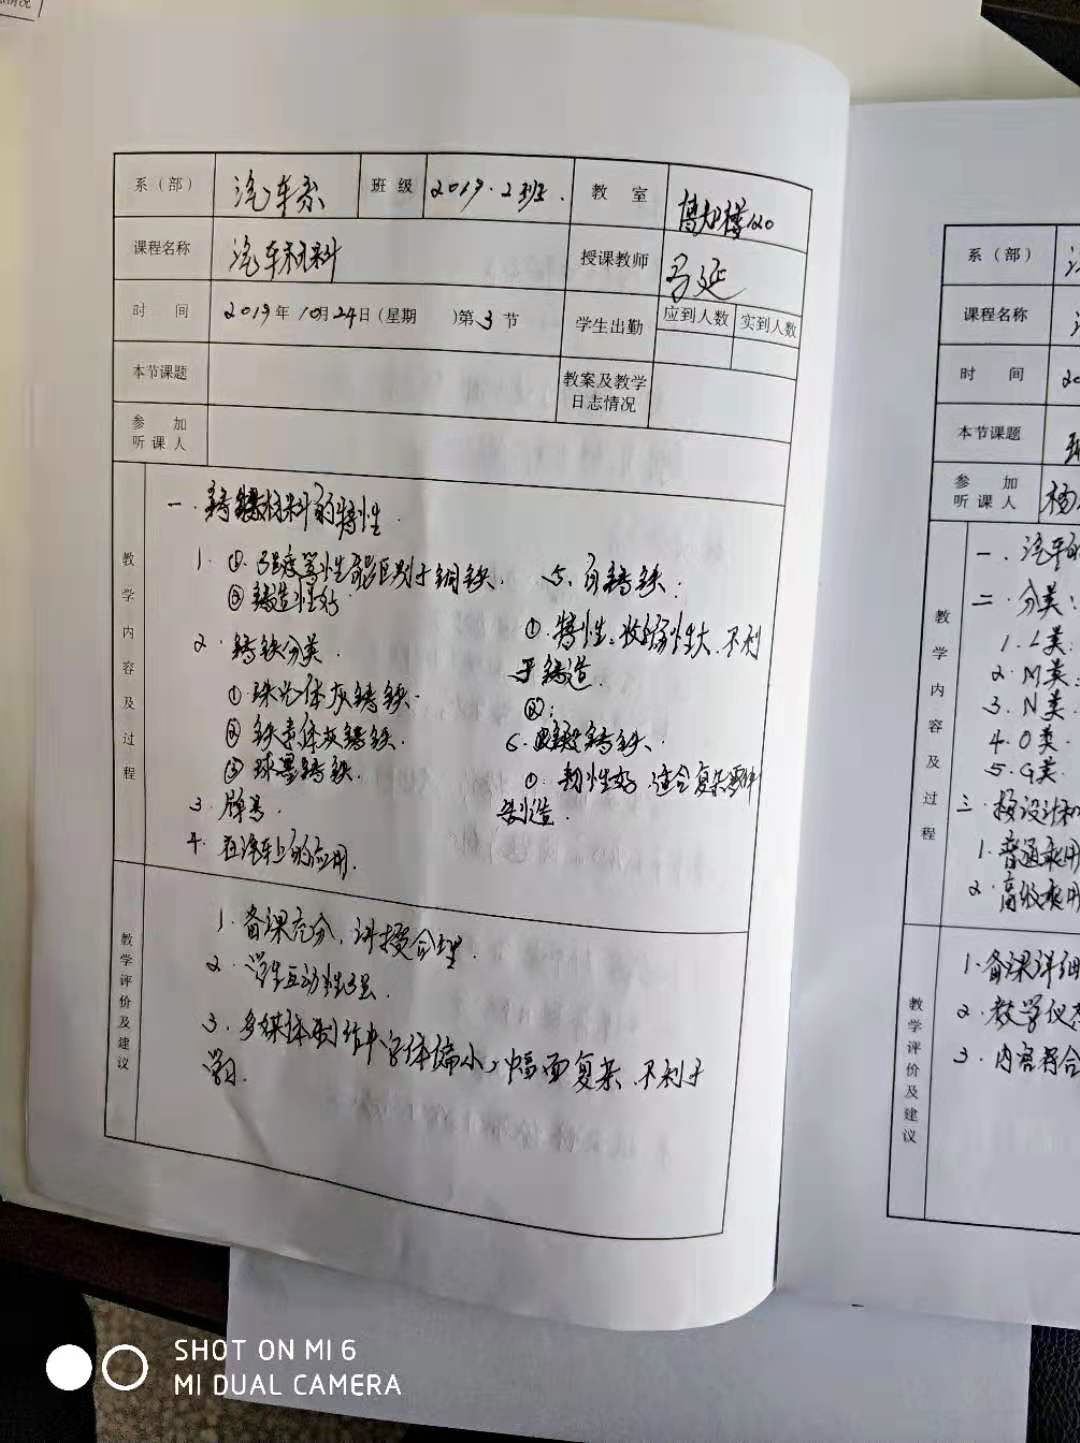 系（部） 汽车系 班级 2019.2班. 教室 博知楼120
课程名称 汽车材料 授课教师 马延
时间 2019年10月24日(星期 )第3节 学生出勤 应到人数 实到人数
本节课题 教案及教学日志情况
参加听课人
教学内容及过程
一. 铸铁材料的特性.
1. ①. 强度等性能区别于钢铁.
② 铸造性好
2. 铸铁分类.
① 珠光体灰铸铁.
② 铁素体灰铸铁.
③ 球墨铸铁.
3. 牌号.
4. 在汽车上的应用.
5. 可铸铁:
①. 特性: 收缩性大. 不利
于铸造.
②:
6. 铸铁.
①: 韧性好. 适合复杂零件
制造.
教学评价及建议
1. 备课充分, 讲授合理.
2. 学生互动性强.
3. 多媒体制作中字体偏小, 幅面复杂, 不利于
学习.
系（部）
课程名称
时间 20
本节课题
参加听课人 杨
教学内容及过程
一. 汽车的
二. 分类:
1. L类:
2. M类:
3. N类.
4. O类.
5. G类.
三. 按设计和
1. 普通乘用
2. 高级乘用
教学评价及建议
1. 备课详细
2. 教学仪态
3. 内容符合
SHOT ON MI 6
MI DUAL CAMERA